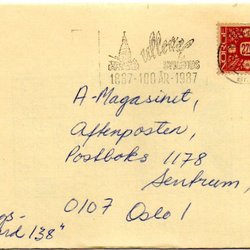 ullevål
1887-100 ÅR-1987
A-Magasinet,
Aftenposten,
Postboks 1178
Sentrum,
0107 Oslo 1
ord 138"